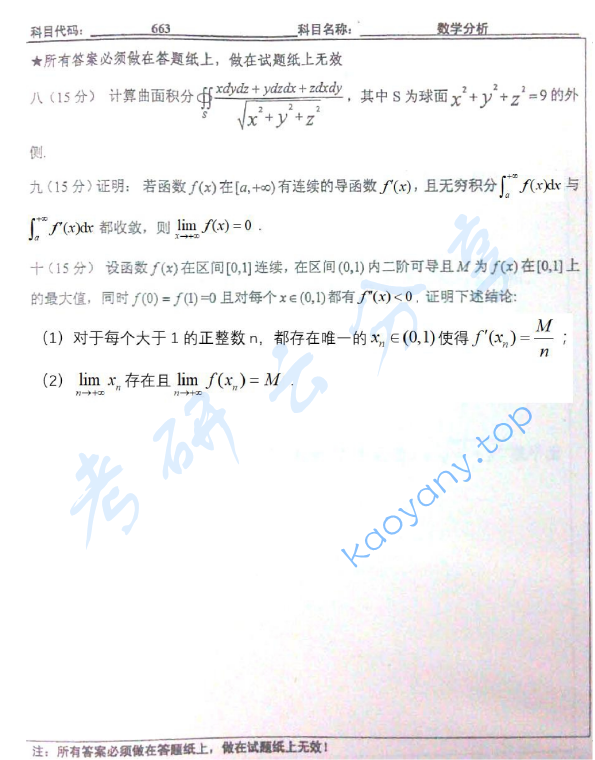 科目代码: 663 科目名称: 数学分析
★所有答案必须做在答题纸上，做在试题纸上无效
八（15 分） 计算曲面积分 ∯_S (xdydz + ydzdx + zdxdy)/√(x² + y² + z²) ，其中 S 为球面 x² + y² + z² =9 的外
侧.
九（15 分）证明： 若函数 f(x) 在[a,+∞) 有连续的导函数 f′(x)，且无穷积分 ∫_a^{+∞} f(x)dx 与
∫_a^{+∞} f′(x)dx 都收敛，则 lim_{x→+∞} f(x) = 0 .
十（15 分） 设函数 f(x) 在区间[0,1] 连续，在区间 (0,1) 内二阶可导且 M 为 f(x) 在[0,1] 上
的最大值，同时 f(0) = f(1) =0 且对每个 x∈(0,1) 都有 f″(x)<0，证明下述结论:
（1）对于每个大于 1 的正整数 n，都存在唯一的 x_n ∈(0,1) 使得 f′(x_n) = M/n ；
（2） lim_{n→+∞} x_n 存在且 lim_{n→+∞} f(x_n) = M .
考研云分享
kaoyany.top
注：所有答案必须做在答题纸上，做在试题纸上无效！